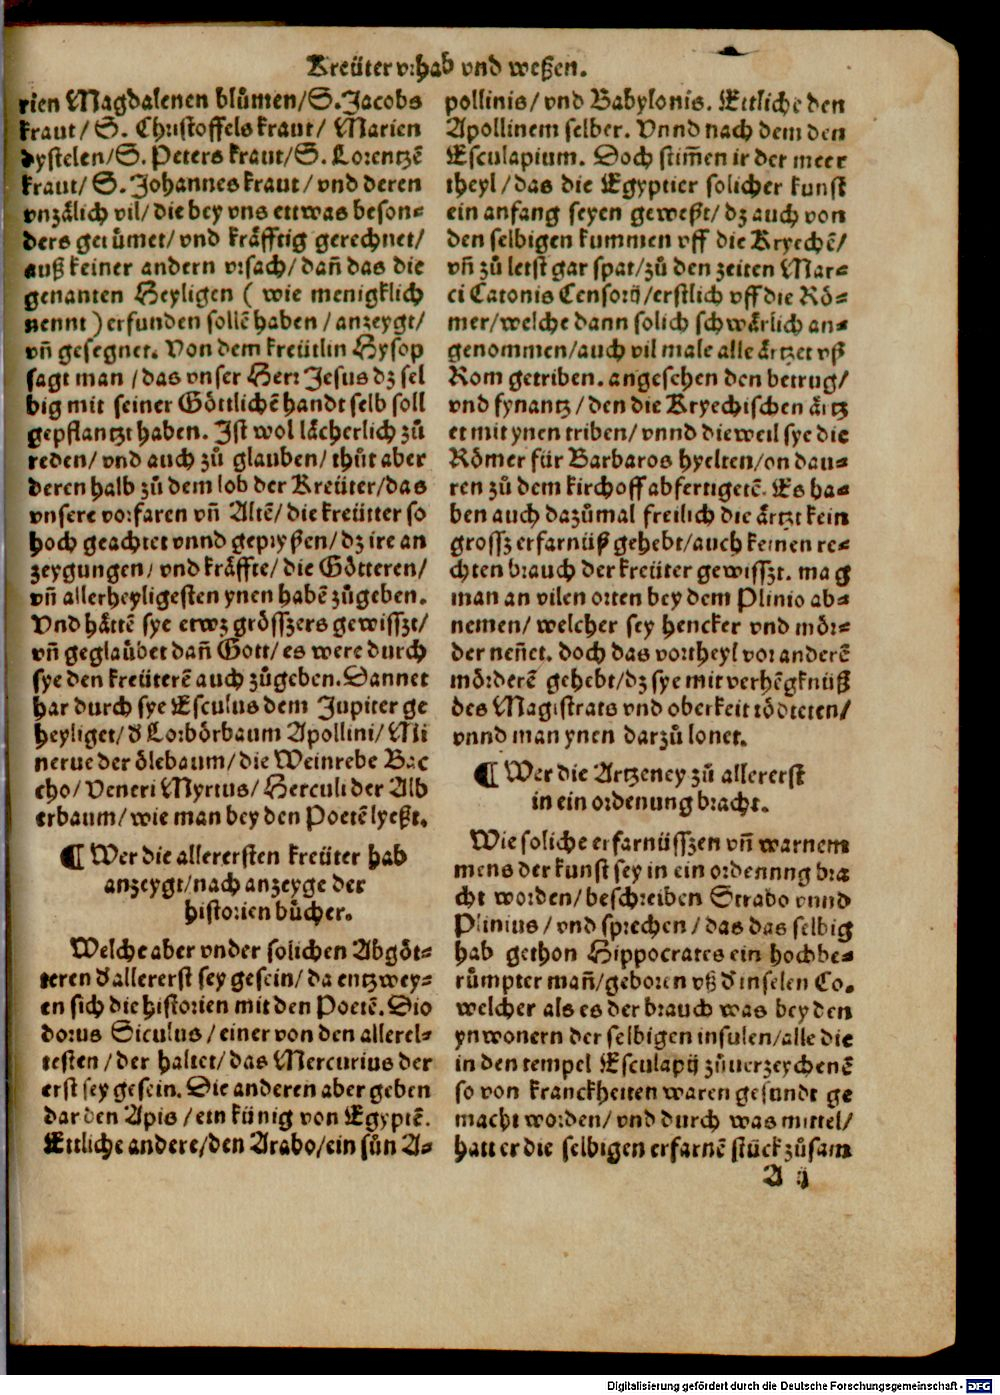 Kreüter vrhab vnd weßen.
rien Magdalenen blůmen/S.Jacobs
kraut/ S. Christoffels kraut/ Marien
dystelen/S. Peters kraut/S. Lorentzē
kraut/ S. Johannes kraut/vnd deren
vnzälich vil/die bey vns ettwas beson⸗
ders gerůmet/ vnd kräfftig gerechnet/
auß keiner andern vrsach/dañ das die
genanten Heyligen ( wie menigklich
nennt ) erfunden sollē haben /anzeygt/
vñ gesegnet. Von dem kreütlin Hysop
sagt man /das vnser Herr Jesus dz sel
big mit seiner Göttlichē handt selb soll
gepflantzt haben. Jst wol lächerlich zů
reden/ vnd auch zů glauben/thůt aber
deren halb zů dem lob der Kreüter/das
vnsere vorfaren vñ Altē/die kreütter so
hoch geachtet vnnd gepryßen/dz ire an
zeygungen/ vnd kräffte/die Götteren/
vñ allerheyligesten ynen habē zůgeben.
Vnd hättē sye etwz grösszers gewisszt/
vñ geglaübet dañ Gott/es were durch
sye den kreüterē auch zůgeben.Dannet
har durch sye Esculus dem Jupiter ge
heyliget/d̕ Lorbörbaum Apollini/Mi
nerue der ölebaum/die Weinrebe Bac
cho/Veneri Myrtus/Herculi der Alb
erbaum/wie man bey den Poetē lyeßt.
¶ Wer die allerersten kreüter hab
anzeygt/nach anzeyge der
historien bücher.
Welche aber vnder solichen Abgöt⸗
teren d̕ allererst sey gesein/da entzwey⸗
en sich die historien mit den Poetē.Dio
dorus Siculus/einer von den allerel⸗
testen /der haltet/das Mercurius der
erst sey gesein. Die anderen aber geben
dar den Apis /ein künig von Egyptē.
Ettliche andere/den Arabo/ein sůn A⸗
pollinis/vnd Babylonis. Ettliche den
Apollinem selber. Vnnd nach dem den
Esculapium. Doch stim̄en ir der meer
theyl/das die Egyptier solicher kunst
ein anfang seyen geweßt/dz auch von
den selbigen kummen vff die Kryechē/
vñ zů letst gar spat/zů den zeiten Mar⸗
ci Catonis Censorij/erstlich vff die Rö⸗
mer/welche dann solich schwärlich an⸗
genommen/auch vil male alle ärtzet vß
Rom getriben. angesehen den betrug/
vnd fynantz/den die Kryechischen ärtz
et mit ynen triben/vnnd dieweil sye die
Römer für Barbaros hyelten/on dau⸗
ren zů dem kirchoff abfertigetē. Es ha⸗
ben auch dazůmal freilich die ärtzt kein
grossz erfarnüß gehebt/auch keinen re⸗
chten brauch der kreüter gewisszt. mag
man an vilen orten bey dem Plinio ab⸗
nemen/ welcher sey hencker vnd mör⸗
der neñet. doch das vortheyl vor anderē
mörderē gehebt/dz sye mit verhēgknüß
des Magistrats vnd oberkeit tödteten/
vnnd man ynen darzů lonet.
¶ Wer die Artzeney zů allererst
in ein ordenung bracht.
Wie soliche erfarnüsszen vñ warnem
mens der kunst sey in ein ordennng bra
cht worden/beschreiben Strabo vnnd
Plinius/vnd sprechen/das das selbig
hab gethon Hippocrates ein hochbe⸗
rümpter mañ/geboren vß d̕ inselen Co.
welcher als es der brauch was bey den
ynwonern der selbigen insulen/alle die
in den tempel Esculapij zůuerzeychenē
so von kranckheiten waren gesundt ge
macht worden/vnd durch was mittel/
hatt er die selbigen erfarnē stück zůsam
A ij
Digitalisierung gefördert durch die Deutsche Forschungsgemeinschaft - DFG